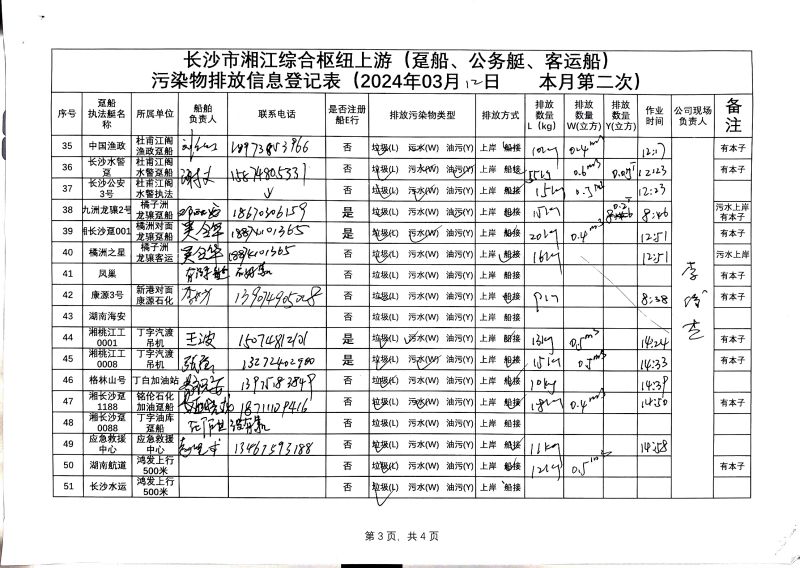 长沙市湘江综合枢纽上游（趸船、公务艇、客运船）
污染物排放信息登记表（2024年03月12日 本月第二次）
序号 趸船执法艇名称 所属单位 船舶负责人 联系电话 是否注册船E行 排放污染物类型 排放方式 排放数量L（kg） 排放数量W(立方) 排放数量Y(立方) 作业时间 公司现场负责人 备注
35 中国渔政 杜甫江阁渔政趸船 否 垃圾(L) 污水(W) 油污(Y) 上岸 船接 10kg 0.4m3 12:17 有本子
36 长沙水警趸 杜甫江阁水警趸船 否 垃圾(L) 污水(W) 油污(Y) 上岸 船接 0.6m3 12:23 有本子
37 长沙公安3号 杜甫江阁水警执法 否 垃圾(L) 污水(W) 油污(Y) 上岸 船接 15kg 12:23 有本子
38 九洲龙骧2号 橘子洲龙骧趸船 18670306159 是 垃圾(L) 污水(W) 油污(Y) 上岸 船接 8:46 污水上岸有本子
39 湘长沙趸001 橘洲对面龙骧趸船 18874101365 是 垃圾(L) 污水(W) 油污(Y) 上岸 船接 20kg 0.4m3 12:51 有本子
40 橘洲之星 橘子洲龙骧客运 18874101365 否 垃圾(L) 污水(W) 油污(Y) 上岸 船接 16kg 12:51 污水上岸
41 凤巢 否 垃圾(L) 污水(W) 油污(Y) 上岸 船接 有本子
42 康源3号 新港对面康源石化 13907490508 否 垃圾(L) 污水(W) 油污(Y) 上岸 船接 8:38 有本子
43 湖南海安 否 垃圾(L) 污水(W) 油污(Y) 上岸 船接
44 湘桃江工0001 丁字汽渡吊机 王波 15074812101 是 垃圾(L) 污水(W) 油污(Y) 上岸 船接 13kg 0.5m3 14:24 有本子
45 湘桃江工0008 丁字汽渡吊机 13272402900 是 垃圾(L) 污水(W) 油污(Y) 上岸 船接 15kg 0.5m3 14:33 有本子
46 格林山号 丁白加油站 13975183849 否 垃圾(L) 污水(W) 油污(Y) 上岸 船接 10kg 14:39
47 湘长沙趸1188 铭伦石化加油趸船 18711109416 否 垃圾(L) 污水(W) 油污(Y) 上岸 船接 18kg 0.4m3 14:50 有本子
48 湘长沙趸0088 丁字油库趸船 否 垃圾(L) 污水(W) 油污(Y) 上岸 船接
49 应急救援中心 应急救援中心 13467593188 否 垃圾(L) 污水(W) 油污(Y) 上岸 船接 11kg 14:58
50 湖南航道 鸿发上行500米 否 垃圾(L) 污水(W) 油污(Y) 上岸 船接 12kg 有本子
51 长沙水运 鸿发上行500米 否 垃圾(L) 污水(W) 油污(Y) 上岸 船接
第 3 页，共 4 页